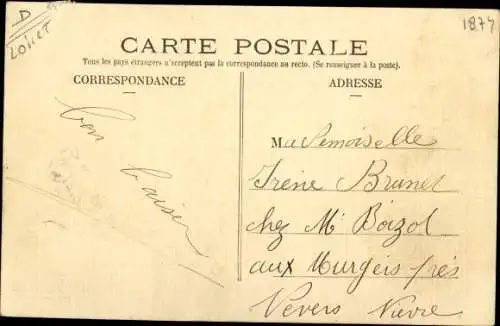 D
Loiret
1874
CARTE POSTALE
Tous les pays étrangers n'acceptent pas la correspondance au recto. (Se renseigner à la poste).
CORRESPONDANCE
ADRESSE
Bon
baiser
Mademoiselle
Irène Brunet
chez Mr Boizot
aux Murgers près
Nevers Nièvre